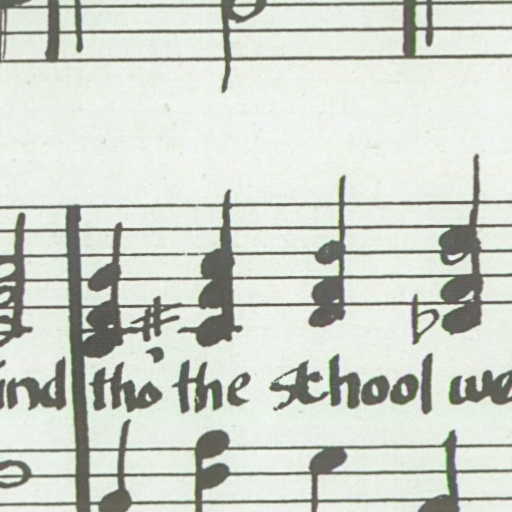 ind tho' the school we